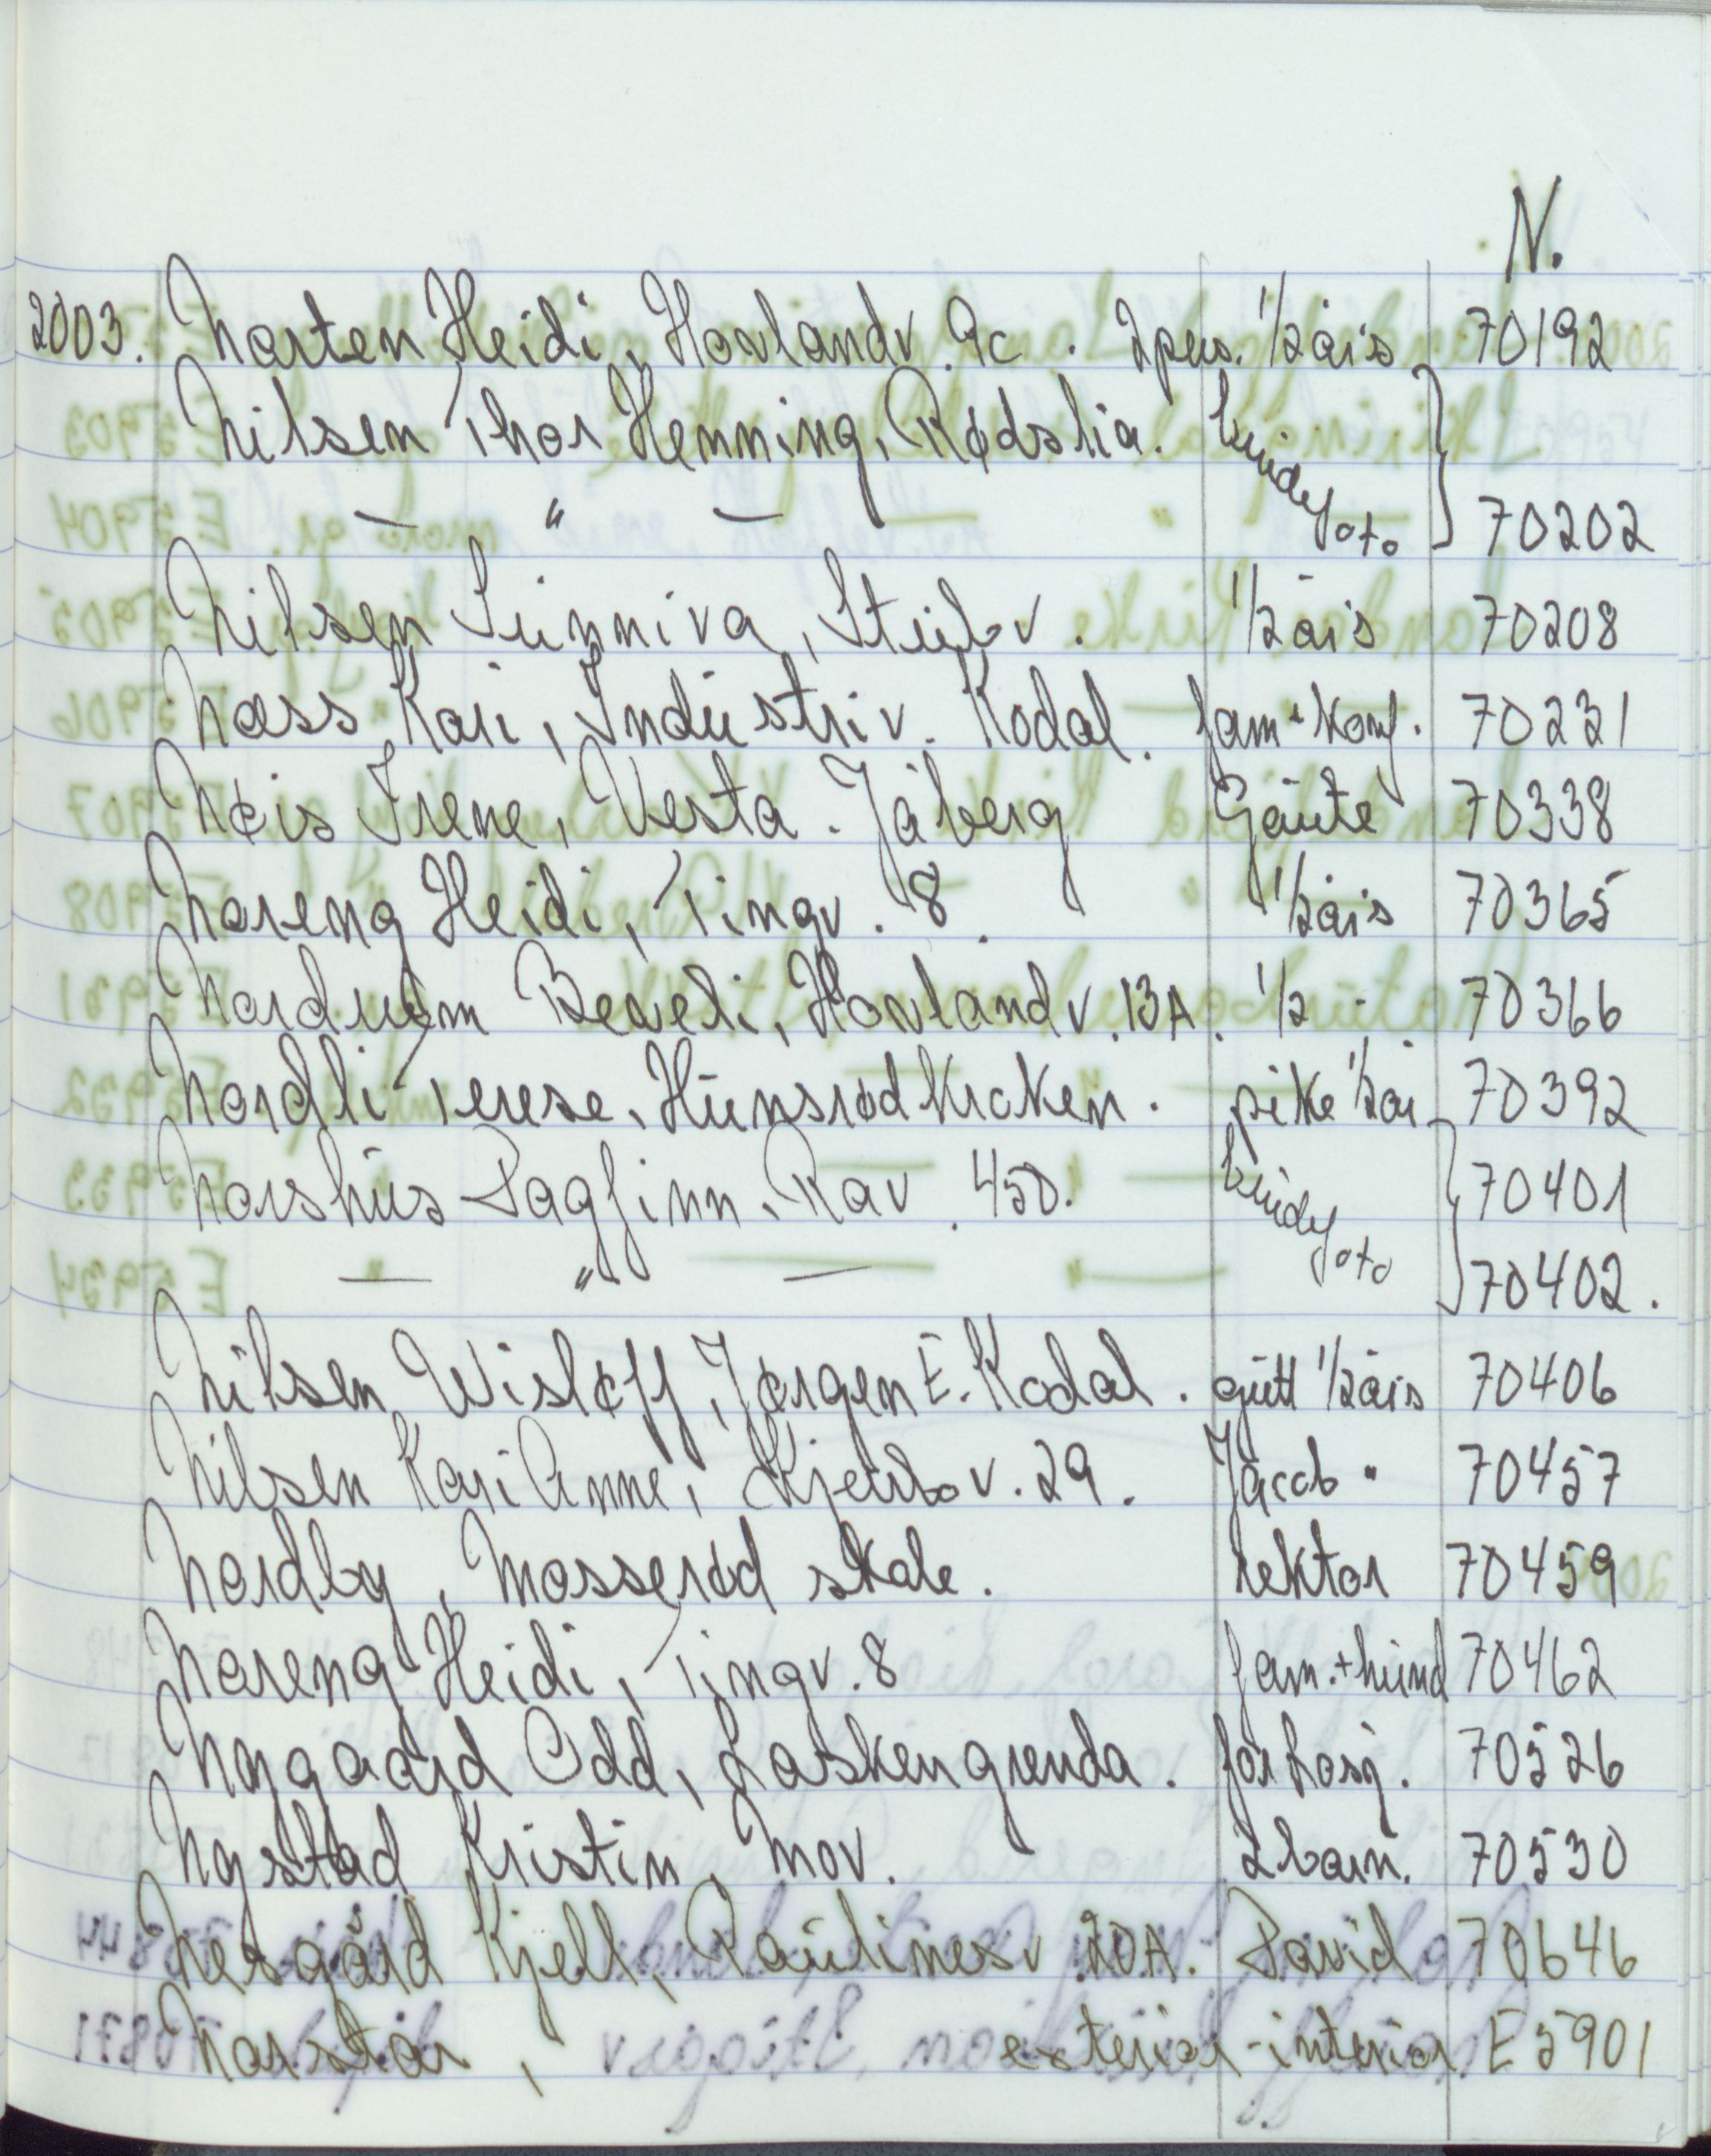 N.
2003. Narten Heidi, Hovlandv. 9c. 2pers. 1/2års 70192
Nilsen Thor Henning, Rødslia. brudefoto
— " — 70202
Nilsen Sunniva, Stubv. 1/2års 70208
Næss Kari, Industriv. Kodal. fam+konf. 70221
Nøis Irene, Vesta. Jåberg Gaute 70338
Noreng Heidi, Tingv. 8. 1/2års 70365
Nordrum Hovlandv. 13A. 1/2 - 70366
Nordli Terese, Hunsrødkroken. pike 1/2år 70392
Norshus Dagfinn, Rav. 450. brudefoto 70401
— " — 70402.
Nilsen Wisløff, Jørgen E. Kodal. gutt 1/2års 70406
Nilsen Kari Anne, Skjeibov. 29. Jacob " 70457
Nordby, Mosserød skole. rektor 70459
Noreng Heidi, Tingv. 8 fam.+hund 70462
Nygaard Odd, Laskengrenda. 70526
Nystad Kristin, Mov. 2barn. 70530
Nesgård Kjell, Paulinesv 20A. David 70646
Norstar, exteriør-interiør E5901